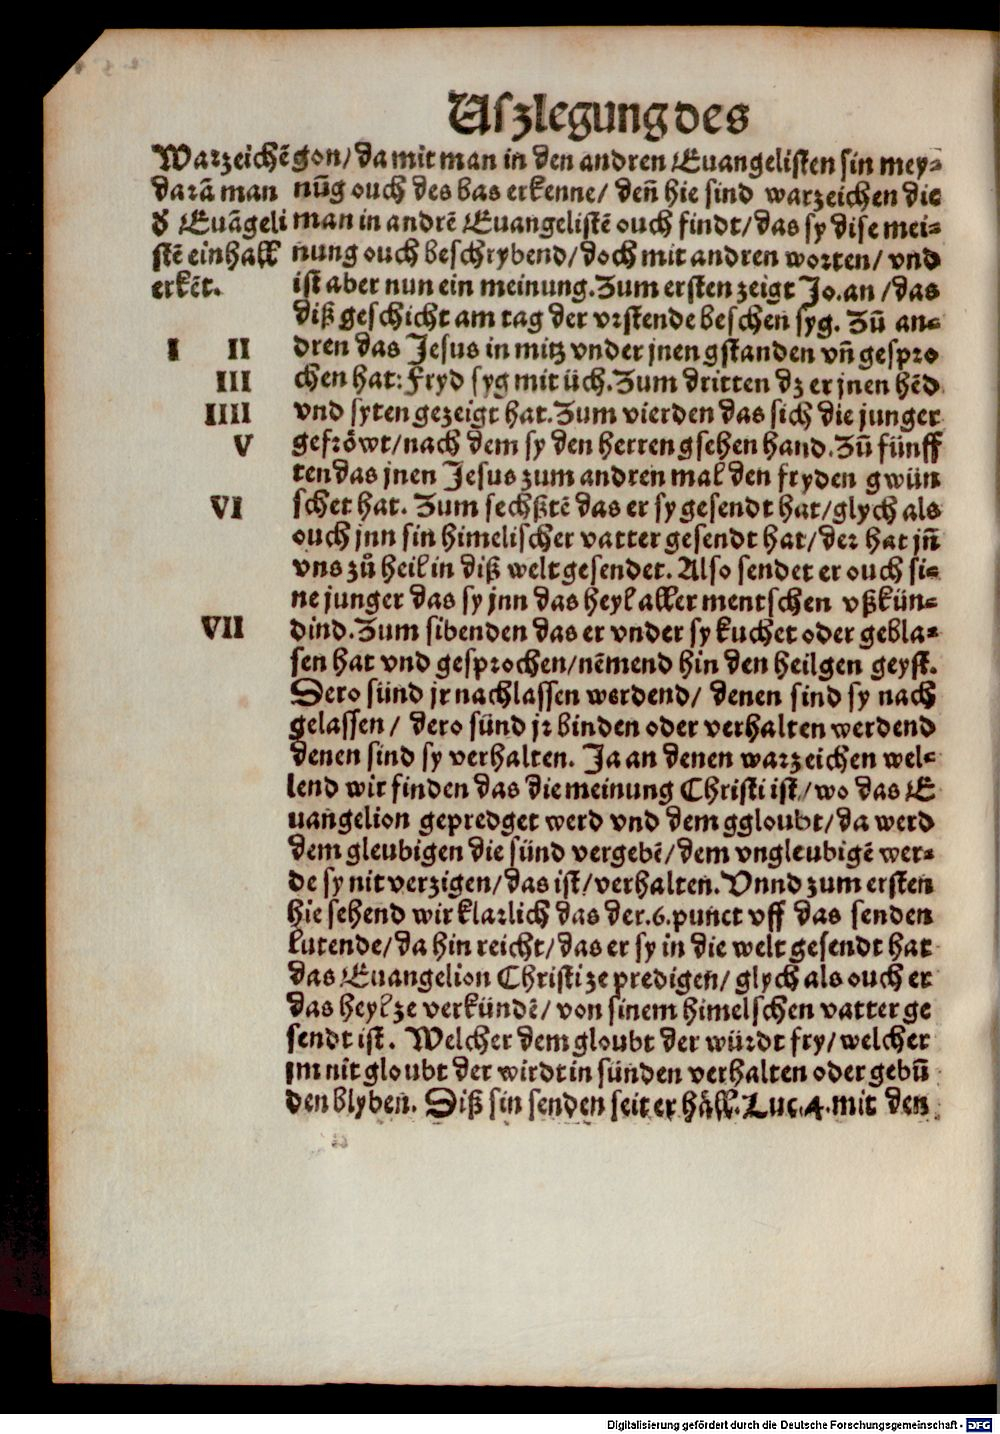 Uſzlegung des
Warzeichē
darā man
ď Euāgeli
ſtē einhåll
erkēt.
gon/ da mit man in den andren Euangeliſten ſin mey-
nūg ouch des bas erkenne/ deñ hie ſind warzeichen die
man in andrē Euangeliſtē ouch findt/ das ſy diſe mei-
nung ouch beſchrybend/ doch mit andren worten/ vnd
iſt aber nun ein meinung. Zum erſten zeigt Jo. an/ das
diß geſchicht am tag der vrſtende beſchen ſyg. Zū an-
I II dren das Jeſus in mitz vnder jnen gſtanden vñ geſpro
III chen hat: Fryd ſyg mit üch. Zum dritten dz er jnen hēd
IIII vnd ſyten gezeigt hat. Zum vierden das ſich die junger
V gefröwt/ nach dem ſy den herren gſehen hand. Zū fünff
ten das jnen Jeſus zum andren mal den fryden gwün
VI ſchet hat. Zum ſechßtē das er ſy geſendt hat/ glych als
ouch jnn ſin himeliſcher vatter geſendt hat/ der hat jñ
vns zů heil in diß welt geſendet. Alſo ſendet er ouch ſi-
ne junger das ſy jnn das heyl aller mentſchen vßkün-
VII dind. Zum ſibenden das er vnder ſy kuchet oder gebla-
ſen hat vnd geſprochen/ nēmend hin den heilgen geyſt.
Dero ſünd jr nachlaſſen werdend/ denen ſind ſy nach
gelaſſen/ dero ſünd jr binden oder verhalten werdend
denen ſind ſy verhalten. Ja an denen warzeichen wel-
lend wir finden das die meinung Chriſti iſt/ wo das E
uangelion gepredget werd vnd dem ggloubt/ da werd
dem gleubigen die ſünd vergebē/ dem vngleubigē wer-
de ſy nit verzigen/ das iſt/ verhalten. Vnnd zum erſten
hie ſehend wir klarlich das der .6. punct vff das ſenden
lutende/ da hin reicht/ das er ſy in die welt geſendt hat
das Euangelion Chriſti ze predigen/ glych als ouch er
das heyl ze verkündē/ von ſinem himelſchen vatter ge
ſendt iſt. Welcher dem gloubt der würdt fry/ welcher
jm nit gloubt der wirdt in ſünden verhalten oder gebū
den blyben. Diß ſin ſenden ſeit er häll. Luc. 4. mit den
Digitalisierung gefördert durch die Deutsche Forschungsgemeinschaft - DFG